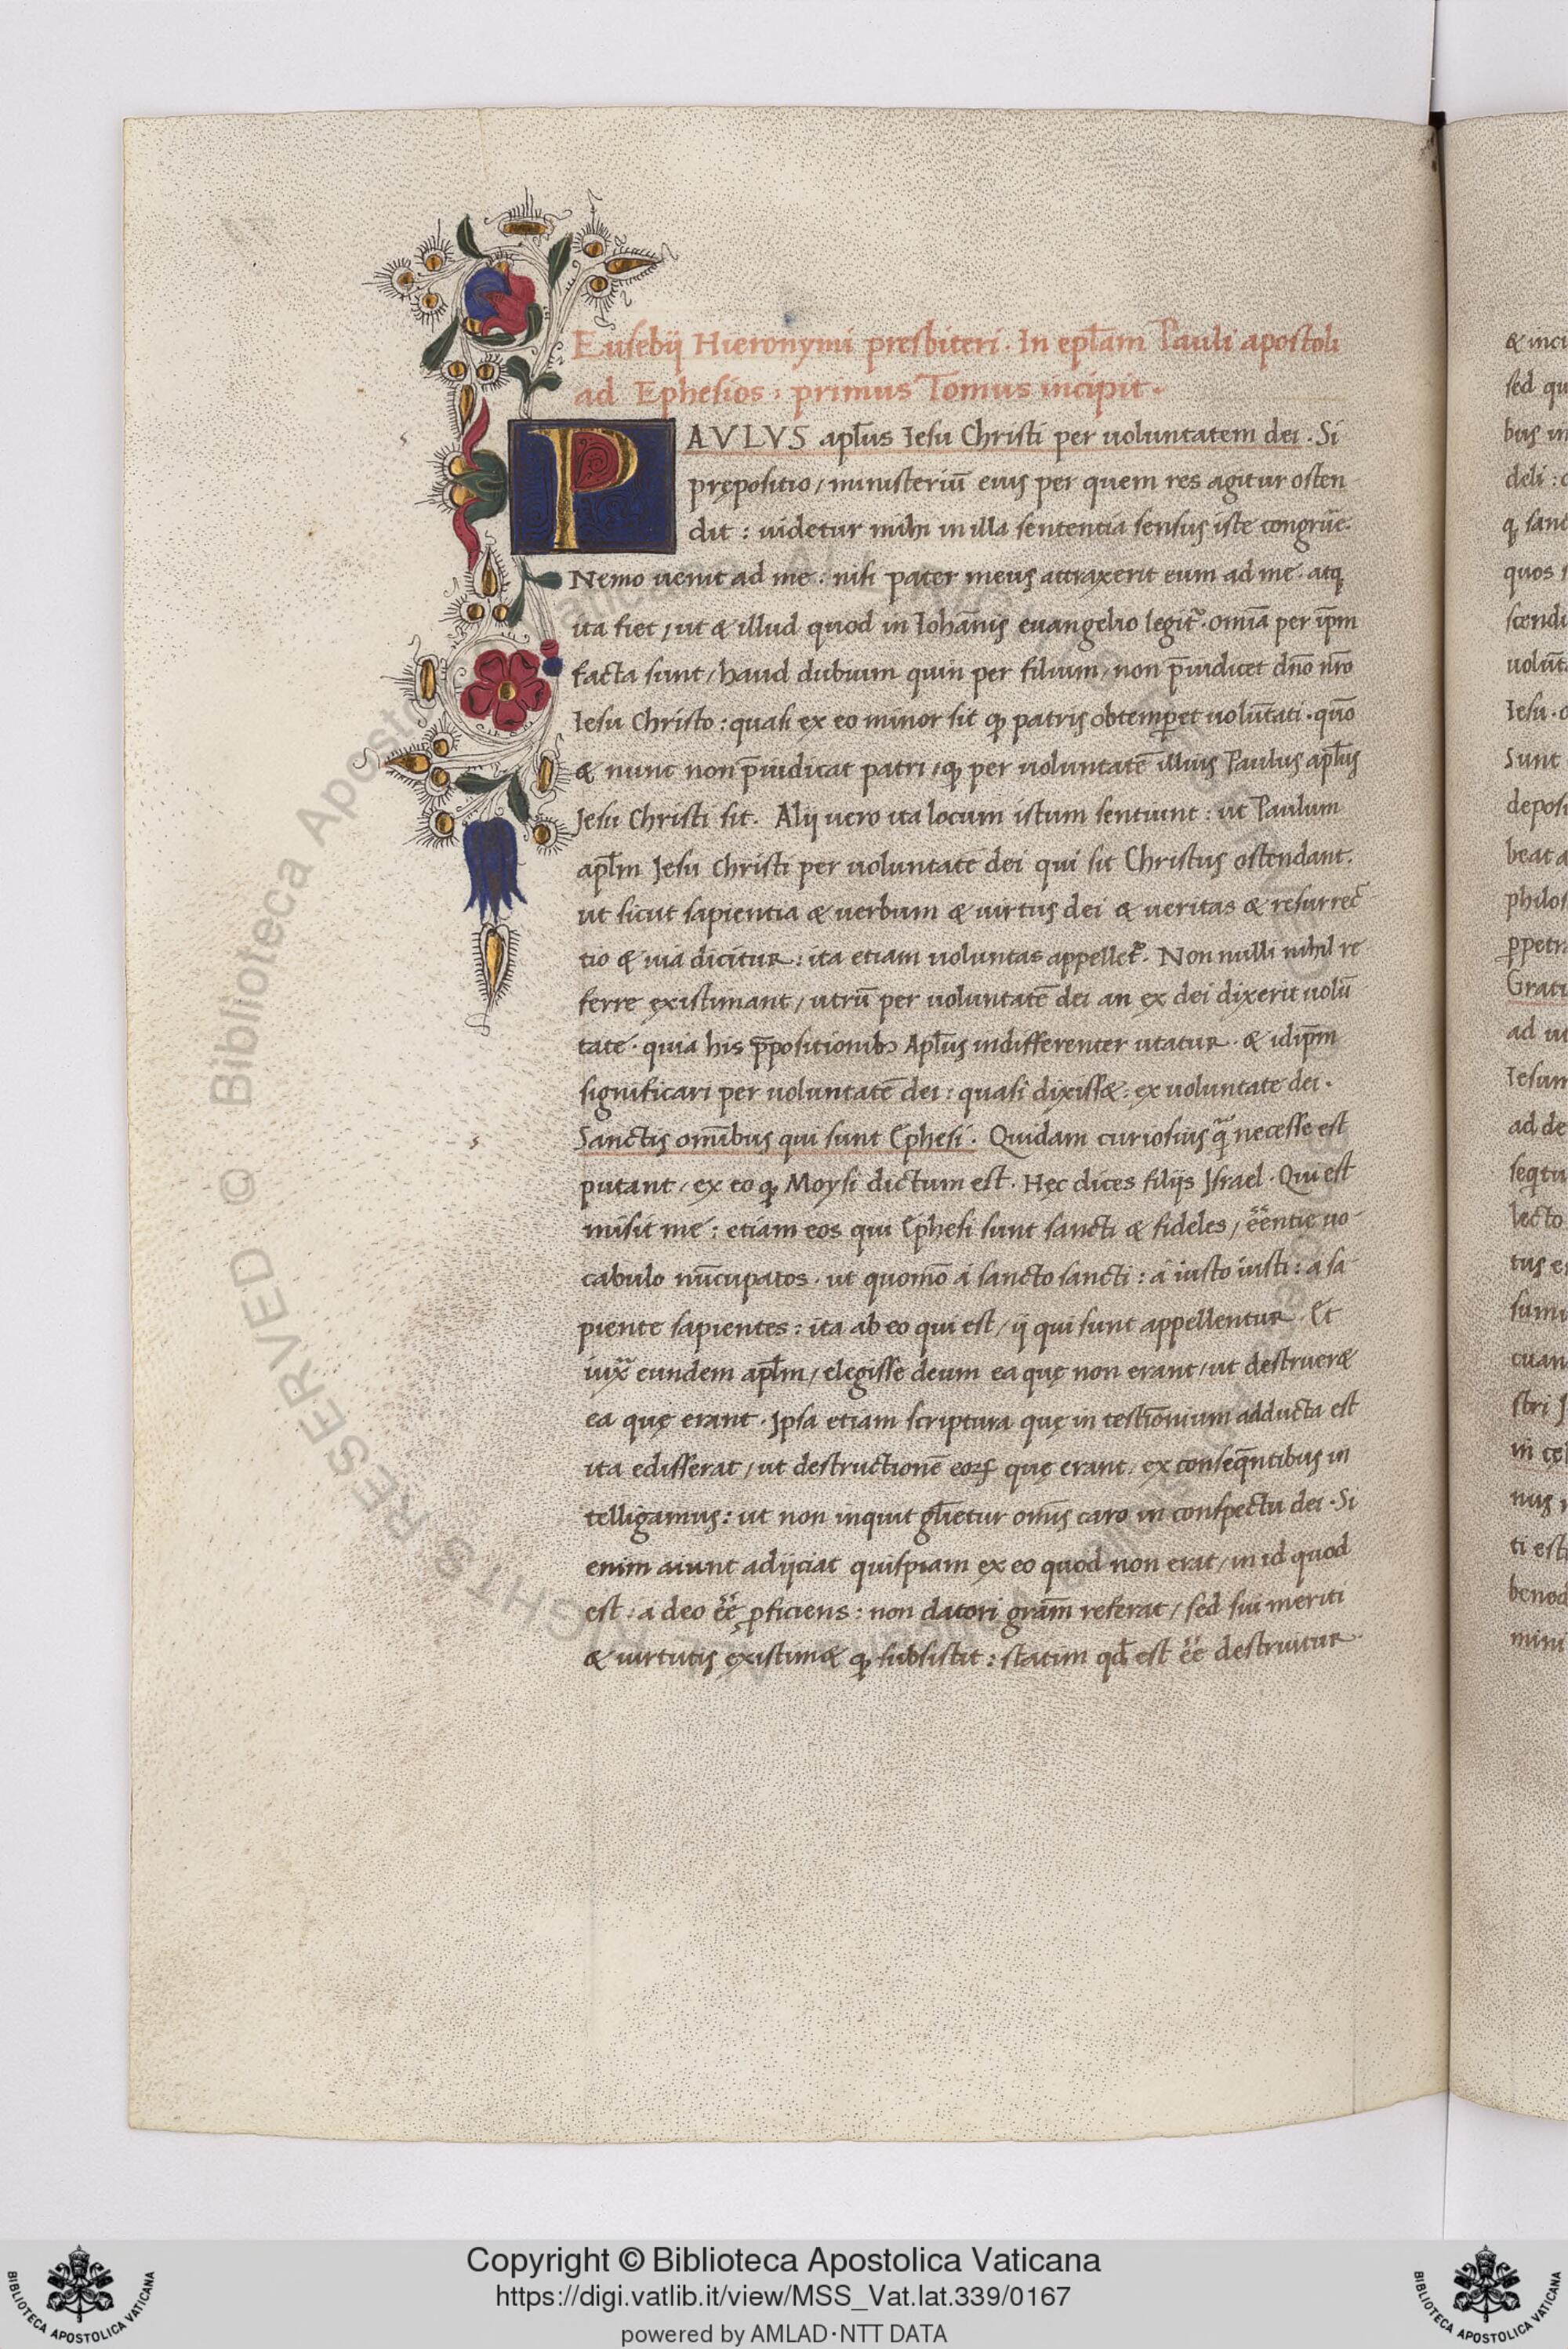 Eusebij Hieronymi presbiteri. In ep̄lam Pauli apostoli
ad Ephesios: primus Tomus incipit.
PAVLVS apl̄us Iesu Christi per uoluntatem dei. Si
prępositio/ ministeriū eius per quem res agitur osten
dit: uidetur mihi in illa sententia sensus iste congrūe.
Nemo uenit ad me. nisi pater meus attraxerit eum ad me. atq
ita fiet/ ut & illud quod in Iohānis euangelio legit᷑. omīa per ip̄m
facta sunt/ haud dubium quin per filium/ non p̄iudicet dn̄o nr̄o
Iesu Christo: quasi ex eo minor sit ꝙ patris obtemꝑet uolūtati. quō
& nunc non p̄iudicat patri/ ꝙ per uoluntatē illius Paulus apl̄us
Jesu Christi sit. Alij uero ita locum istum sentiunt: ut Paulum
apl̄m Jesu Christi per uoluntatē dei qui sit Christus ostendant.
ut sicut sapientia & uerbum & uirtus dei & ueritas & resurrec
tio & uia dicitur: ita etiam uoluntas appellet᷑. Non nulli nihil re
ferre existimant/ utrū per uoluntatē dei an ex dei dixerit uolū
tate. quia his p̄positionibꝫ Apl̄us indifferenter utatur. & idip̄m
significari per uoluntatē dei: quasi dixiss&: ex uoluntate dei.
Sanctis omībus qui sunt Ephesi. Quidam curiosius q̄ necesse est
putant/ ex eo ꝙ Moysi dictum est. Hęc dices filijs Jsrael. Qui est
misit me: etiam eos qui Ephesi sunt sancti & fideles/ ēēntie uo
cabulo nūcupatos. ut quomō a sancto sancti: a iusto iusti: a sa
piente sapientes: ita ab eo qui est/ ij qui sunt appellentur. Et
iux̄ eundem apl̄m/ elegisse deum ea quę non erant/ ut destruer&
ea quę erant. Jpsa etiam scriptura quę in testīonium adducta est
ita edisserat/ ut destructionē eoꝝ quę erant/ ex conseq̄ntibus in
telligamus: ut non inquit gl̄ietur omīs caro in conspectu dei. Si
enim aiunt adijciat quispiam ex eo quod non erat/ in id quod
est: a deo ēē ꝓficiens: non datori grām referat/ sed sui meriti
& uirtutis existim& ꝙ subsistit: statim qd̄ est ēē destruitur
& inci
sed qu
bus in
deli
uolūt
Sunt
philos
Grati
Iesum
ad de
lecto
tus e
cuan
stri J
ti est
benod
mini
© Biblioteca Apostolica Vaticana ALL RIGHTS RESERVED
Copyright © Biblioteca Apostolica Vaticana
https://digi.vatlib.it/view/MSS_Vat.lat.339/0167
powered by AMLAD·NTT DATA
BIBLIOTECA APOSTOLICA VATICANA
BIBLIOTECA APOSTOLICA VATICANA